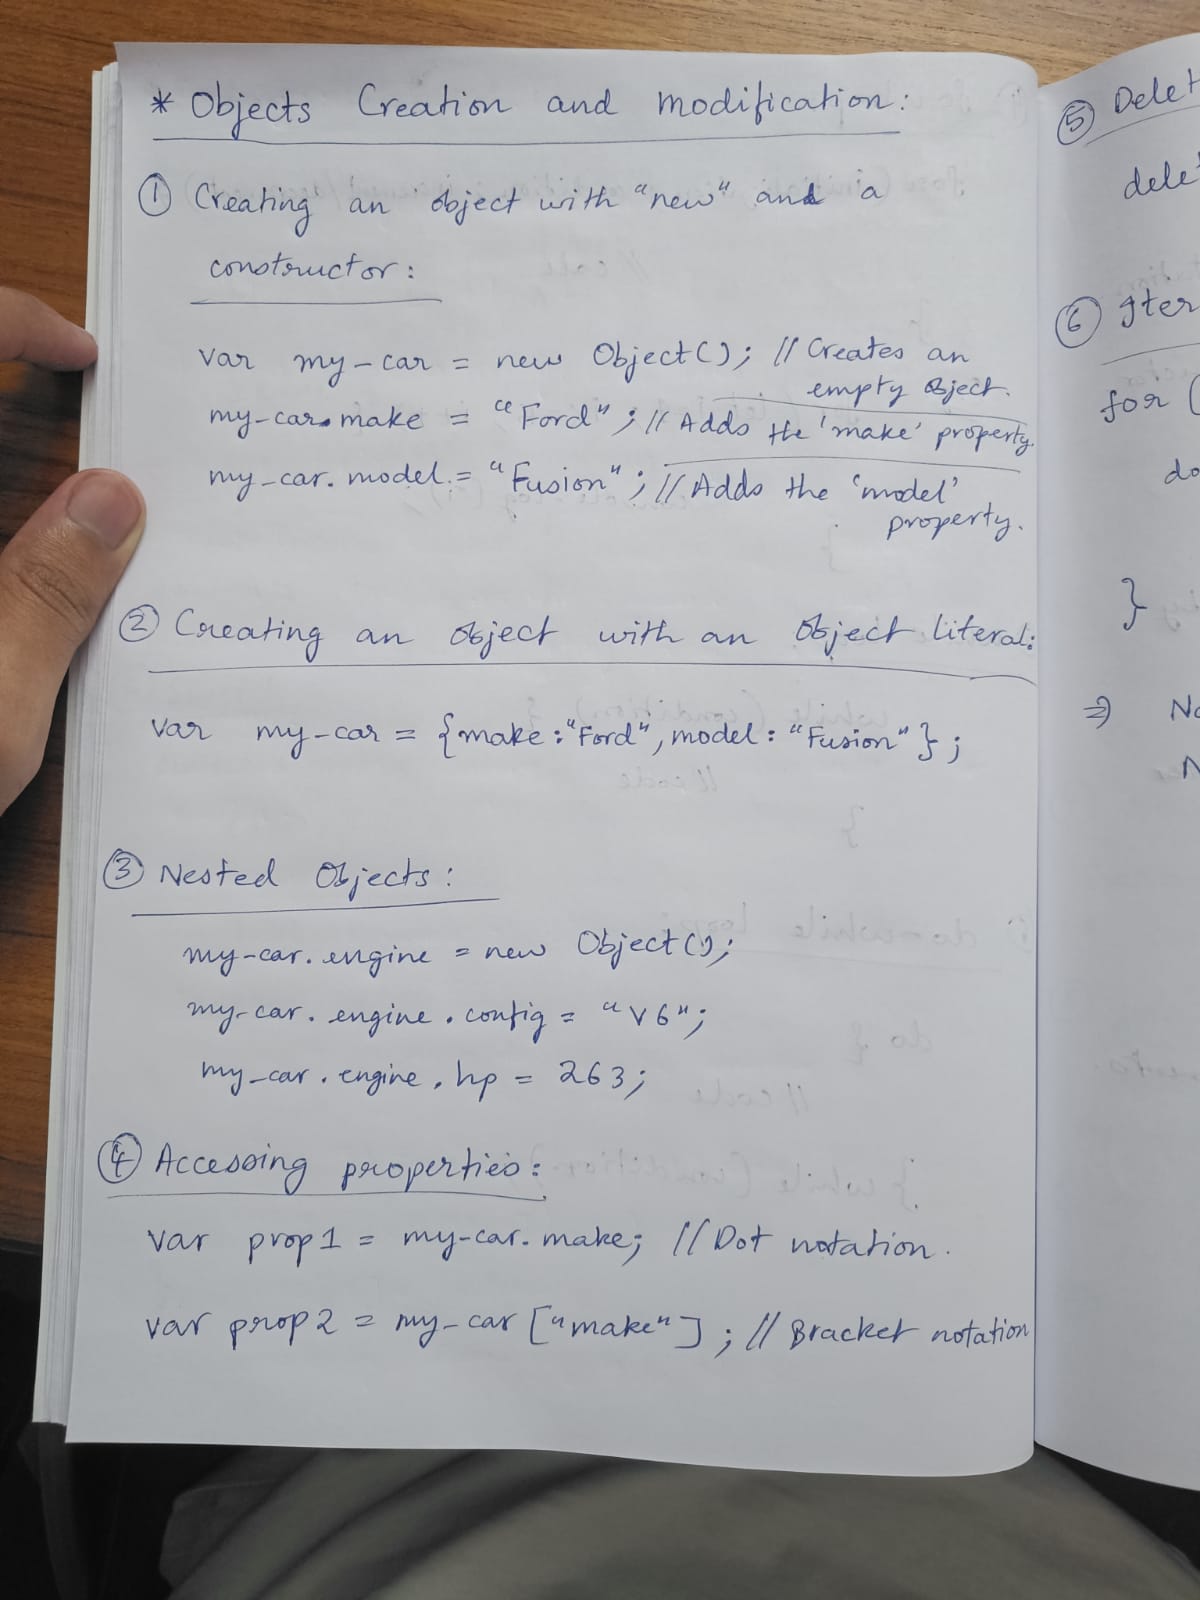 * Objects Creation and modification:
① Creating an object with "new" and a
constructor:
var my-car = new Object(); // Creates an
empty object.
my-car.make = "Ford"; // Adds the 'make' property.
my-car.model = "Fusion"; // Adds the 'model'
property.
② Creating an object with an object literal:
var my-car = {make:"Ford", model: "Fusion"};
③ Nested Objects:
my-car.engine = new Object();
my-car.engine.config = "V6";
my-car.engine.hp = 263;
④ Accessing properties:
var prop1 = my-car.make; // Dot notation.
var prop2 = my-car ["make"]; // Bracket notation
⑤ Delet
delet
⑥ Iter
for (
do
}
⇒ No
N